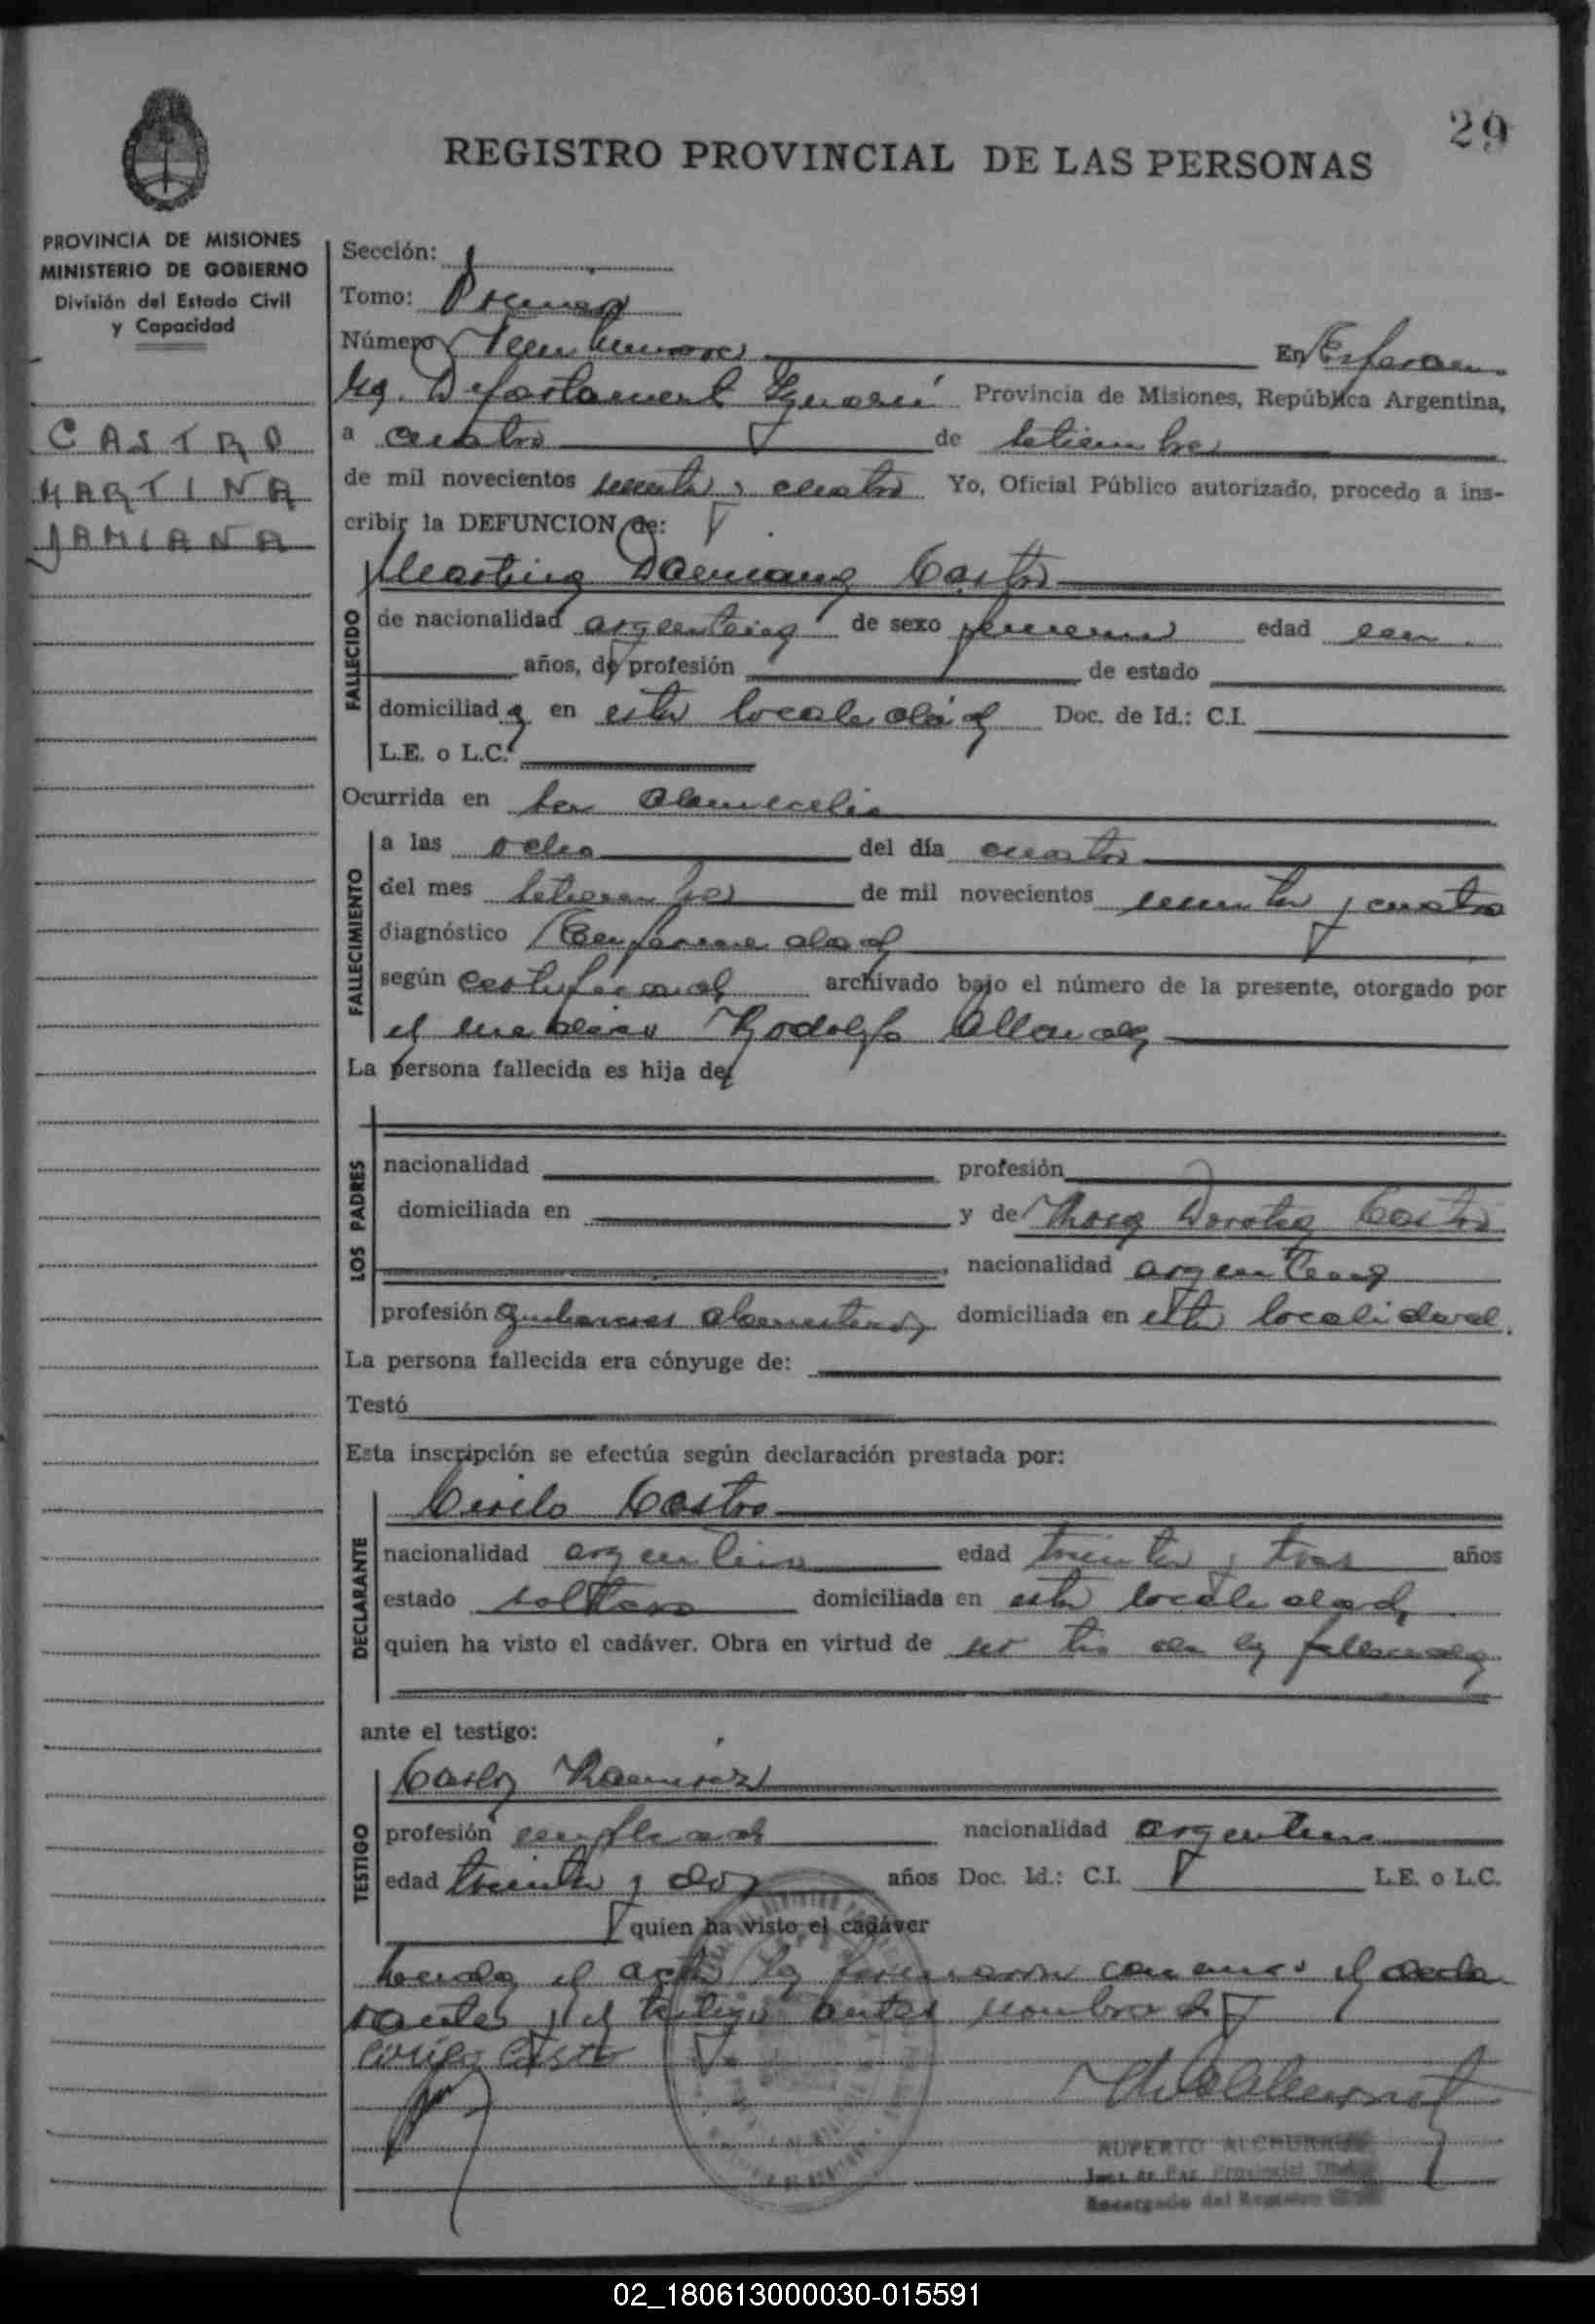 29
REGISTRO PROVINCIAL DE LAS PERSONAS
PROVINCIA DE MISIONES
MINISTERIO DE GOBIERNO
División del Estado Civil
y Capacidad
CASTRO
MARTINA
DAMIANA
Sección: 1
Tomo: Primero
Número En
Departamento Guaraní Provincia de Misiones, República Argentina,
a cuatro de setiembre
de mil novecientos sesenta y cuatro Yo, Oficial Público autorizado, procedo a ins-
cribir la DEFUNCION de:
Martina Damiana Castro
FALLECIDO
de nacionalidad argentina de sexo femenino edad
años, de profesión de estado
domiciliada en esta localidad Doc. de Id.: C.I.
L.E. o L.C.
Ocurrida en su domicilio
FALLECIMIENTO
a las ocho del día cuatro
del mes setiembre de mil novecientos sesenta y cuatro
diagnóstico Enfermedad
según certificado archivado bajo el número de la presente, otorgado por
el Rodolfo
La persona fallecida es hija de
LOS PADRES
nacionalidad profesión
domiciliada en y de Rosa Dorotea Castro
nacionalidad argentina
profesión quehaceres domesticos domiciliada en esta localidad.
La persona fallecida era cónyuge de:
Testó
Esta inscripción se efectúa según declaración prestada por:
DECLARANTE
Cirilo Castro
nacionalidad argentino edad treinta y tres años
estado soltero domiciliada en esta localidad
quien ha visto el cadáver. Obra en virtud de ser tio de la fallecida
ante el testigo:
TESTIGO
Carlos Ramirez
profesión empleado nacionalidad argentino
edad treinta y dos años Doc. Id.: C.I. L.E. o L.C.
quien ha visto el cadáver
Leida el acta la firmaron conmigo el decla
rante y el testigo antes nombrado
Cirilo Castro
RUPERTO
Juez de Paz Provincial
Encargado del Registro
02_180613000030-015591